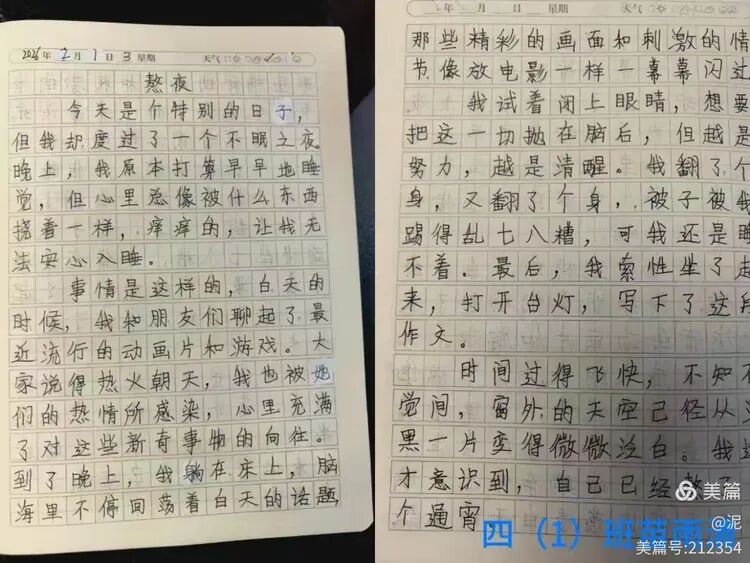 2026年2月1日3星期 天气
熬夜
今天是个特别的日子，
但我却度过了一个不眠之夜。
晚上，我原本打算早早地睡
觉，但心里总像被什么东西
挠着一样，痒痒的，让我无
法安心入睡。
事情是这样的，白天的
时候，我和朋友们聊起了最
近流行的动画片和游戏。大
家说得热火朝天，我也被她
们的热情所感染，心里充满
了对这些新奇事物的向往。
到了晚上，我躺在床上，脑
海里不停回荡着白天的话题，
年 月 日 星期 天气
那些精彩的画面和刺激的情
节像放电影一样一幕幕闪过
我试着闭上眼睛，想要
把这一切抛在脑后，但越是
努力，越是清醒。我翻了个
身，又翻了个身，被子被我
踢得乱七八糟，可我还是睡
不着。最后，我索性坐了起
来，打开台灯，写下了这
作文。
时间过得飞快，不知不
觉间，窗外的天空已经从
黑一片变得微微泛白。我
才意识到，自己已经
个通宵
四（1）班
美篇
@泥
美篇号:212354